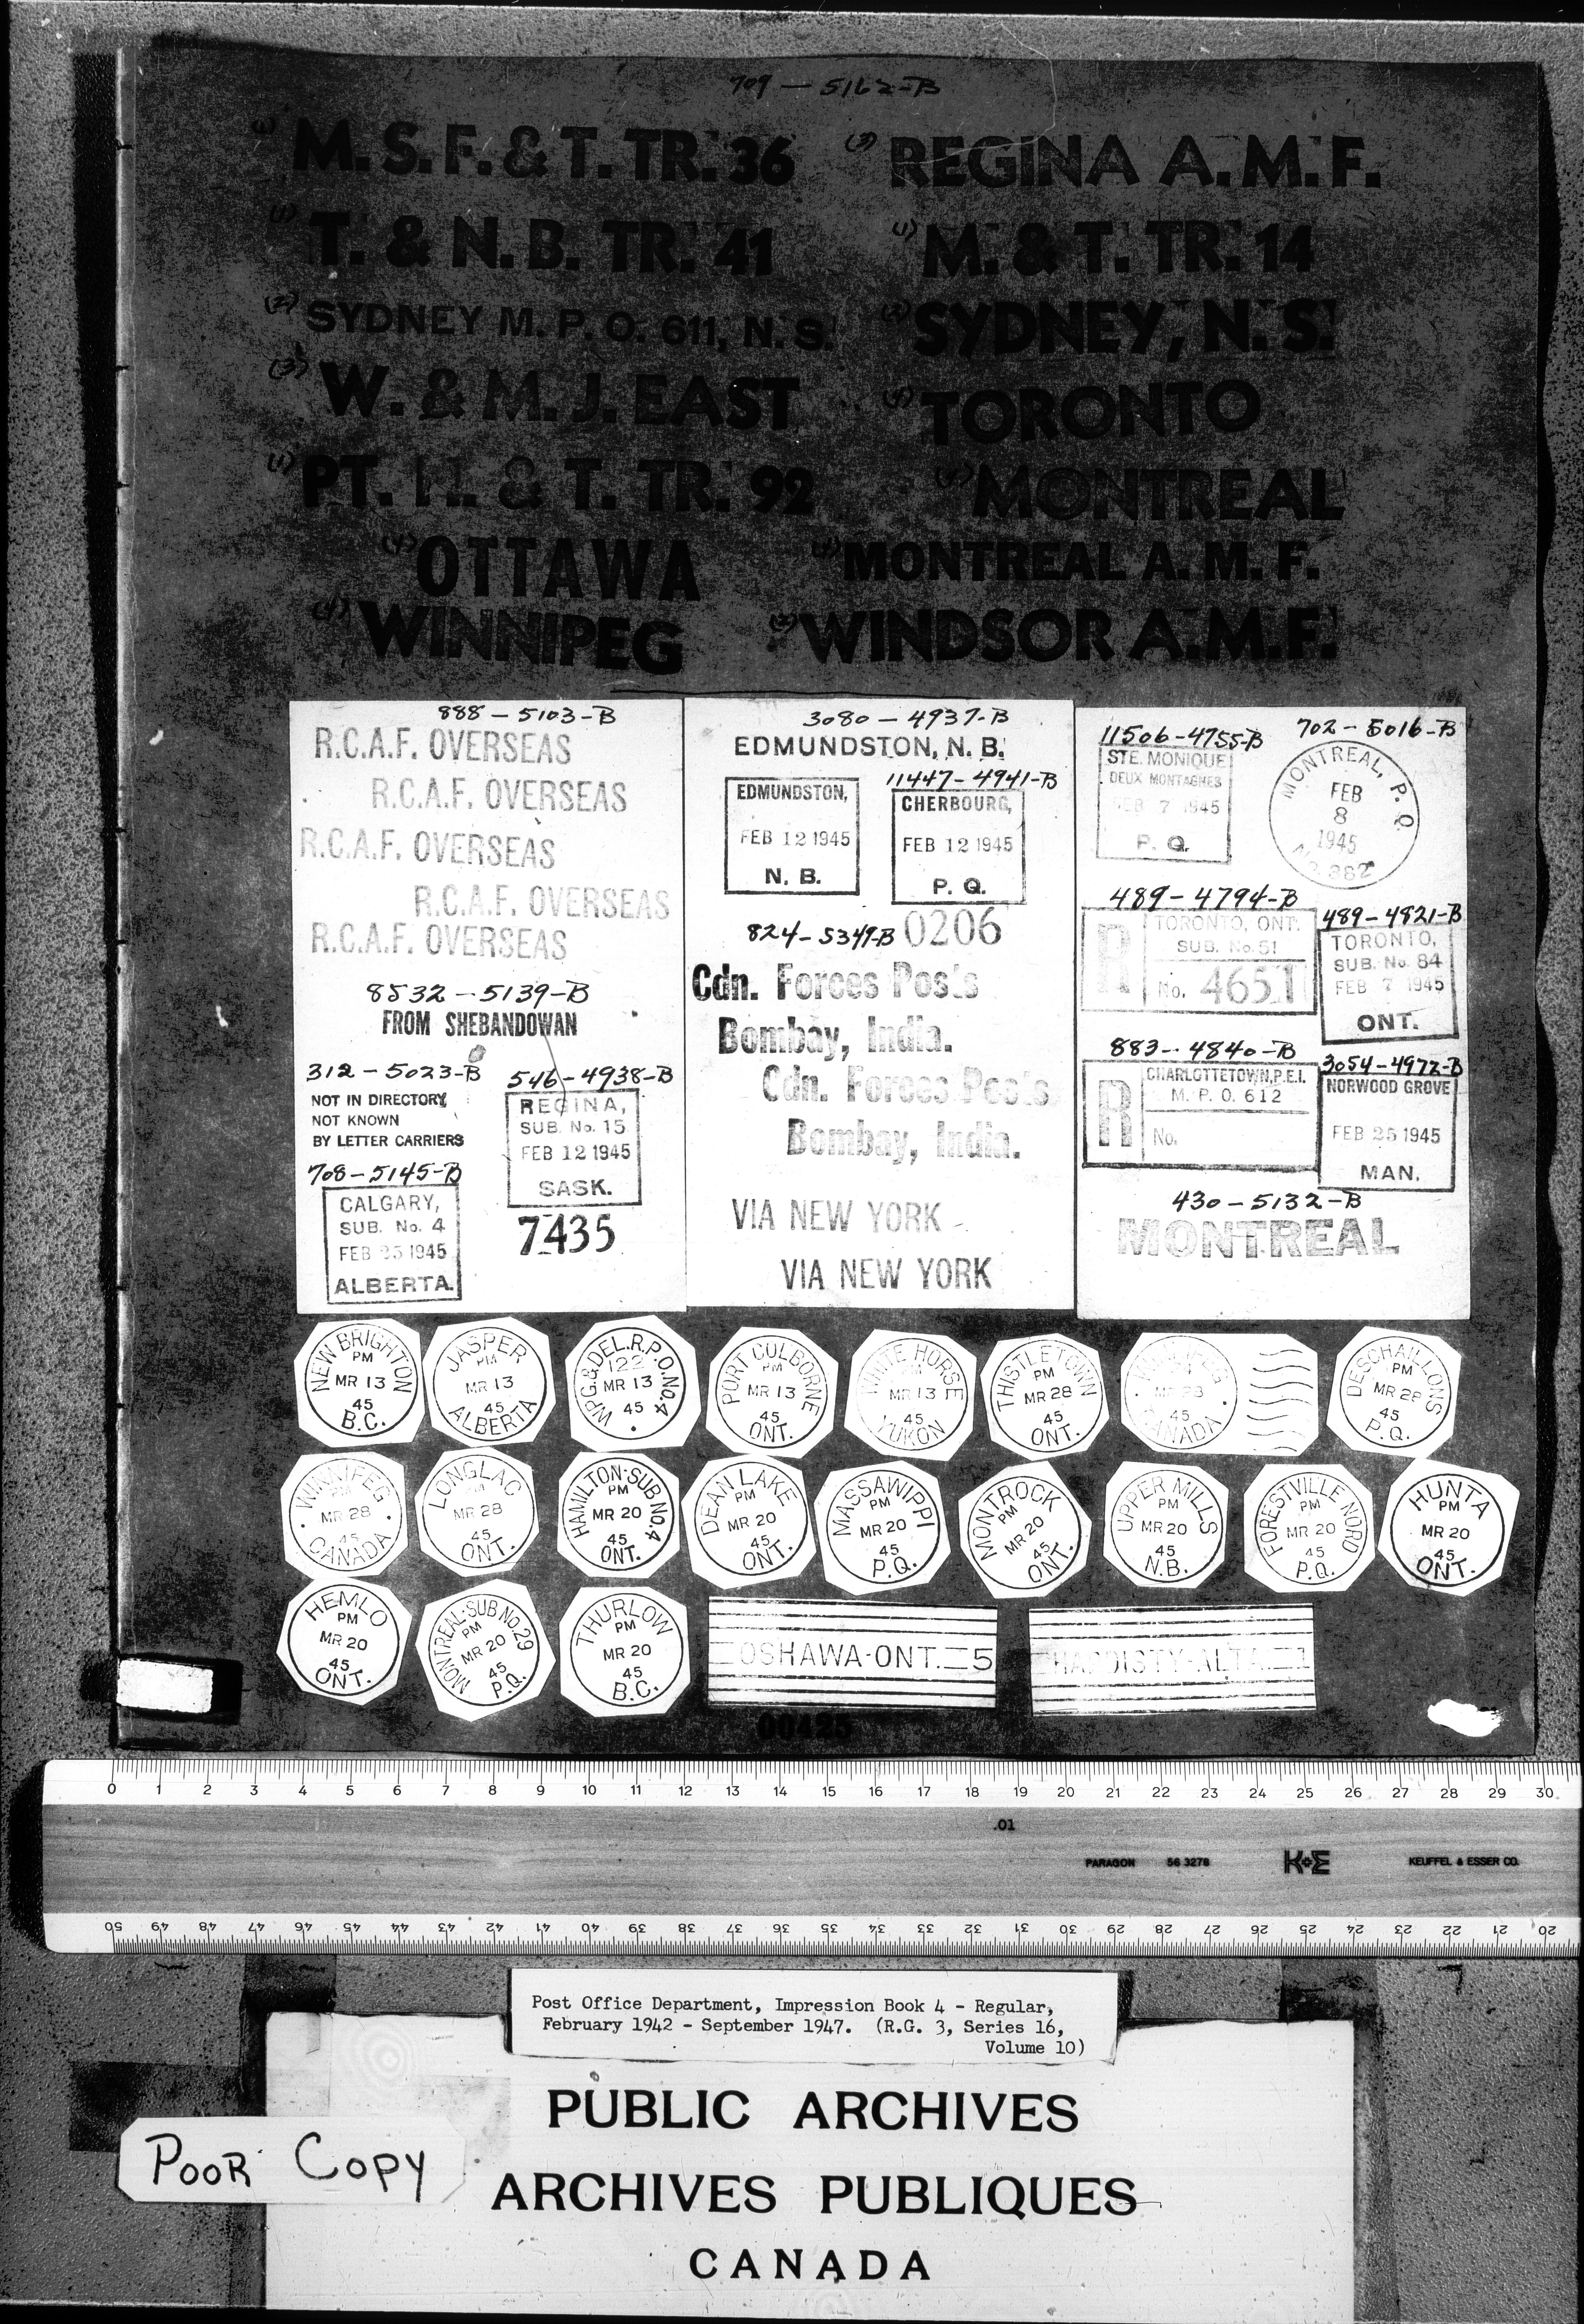 709 - 5162-B
(1) M.S.F. & T. TR. 36
(3) REGINA A.M.F.
(1) T. & N.B. TR. 41
(1) M. & T. TR. 14
(2) SYDNEY M.P.O. 611, N.S.
(2) SYDNEY, N.S.
(3) W. & M.J. EAST
TORONTO
(1) PT. & T. TR. 92
MONTREAL
(4) OTTAWA
MONTREAL A.M.F.
(4) WINNIPEG
WINDSOR A.M.F.
888 - 5103-B
R.C.A.F. OVERSEAS
R.C.A.F. OVERSEAS
R.C.A.F. OVERSEAS
R.C.A.F. OVERSEAS
R.C.A.F. OVERSEAS
8532 - 5139-B
FROM SHEBANDOWAN
312 - 5023-B
NOT IN DIRECTORY
NOT KNOWN
BY LETTER CARRIERS
546 - 4938-B
REGINA,
SUB. No. 15
FEB 12 1945
SASK.
708 - 5145-B
CALGARY,
SUB. No. 4
FEB 25 1945
ALBERTA.
7435
3080 - 4937-B
EDMUNDSTON, N. B.
EDMUNDSTON,
FEB 12 1945
N. B.
11447 - 4941-B
CHERBOURG,
FEB 12 1945
P. Q.
824 - 5349-B
0206
Cdn. Forces Posts
Bombay, India.
Cdn. Forces Posts
Bombay, India.
VIA NEW YORK
VIA NEW YORK
11506 - 4755-B
STE. MONIQUE
DEUX MONTAGNES
FEB 7 1945
P. Q.
702 - 5016-B
MONTREAL, P. Q.
FEB
8
1945
No. 382
489 - 4794-B
R
TORONTO, ONT.
SUB. No. 51
No. 4651
489 - 4821-B
TORONTO,
SUB. No. 84
FEB 7 1945
ONT.
883 - 4840-B
R
CHARLOTTETOWN, P.E.I.
M. P. O. 612
No.
3054 - 4972-B
NORWOOD GROVE
FEB 25 1945
MAN.
430 - 5132-B
MONTREAL
NEW BRIGHTON
PM
MR 13
45
B.C.
JASPER
PM
MR 13
45
ALBERTA
WPG. & DEL. R.P.O. No. 4
122
MR 13
45
PORT COLBORNE
PM
MR 13
45
ONT.
WHITE HORSE
PM
MR 13
45
YUKON
THISTLETOWN
PM
MR 28
45
ONT.
WINNIPEG
MR 28
45
CANADA
DESCHAILLONS
PM
MR 28
45
P.Q.
WINNIPEG
PM
MR 28
45
CANADA
LONGLAC
PM
MR 28
45
ONT.
HAMILTON-SUB NO. 4
PM
MR 20
45
ONT.
DEAN LAKE
PM
MR 20
45
ONT.
MASSAWIPPI
PM
MR 20
45
P.Q.
MONTROCK
PM
MR 20
45
ONT.
UPPER MILLS
PM
MR 20
45
N.B.
FORESTVILLE NORD
PM
MR 20
45
P.Q.
HUNTA
PM
MR 20
45
ONT.
HEMLO
PM
MR 20
45
ONT.
MONTREAL-SUB NO. 29
PM
MR 20
45
P.Q.
THURLOW
PM
MR 20
45
B.C.
OSHAWA-ONT. 5
HARDISTY-ALTA. 1
00425
0 1 2 3 4 5 6 7 8 9 10 11 12 13 14 15 16 17 18 19 20 21 22 23 24 25 26 27 28 29 30
.01
PARAGON 56 3278 K+E KEUFFEL & ESSER CO.
50 49 48 47 46 45 44 43 42 41 40 39 38 37 36 35 34 33 32 31 30 29 28 27 26 25 24 23 22 21 20
Post Office Department, Impression Book 4 - Regular,
February 1942 - September 1947. (R.G. 3, Series 16,
Volume 10)
PUBLIC ARCHIVES
ARCHIVES PUBLIQUES
CANADA
POOR COPY